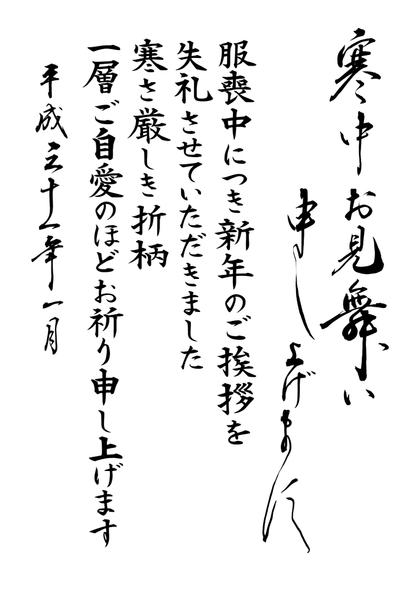 寒中お見舞い
申し上げます
服喪中につき新年のご挨拶を
失礼させていただきました
寒さ厳しき折柄
一層ご自愛のほどお祈り申し上げます
平成三十一年一月